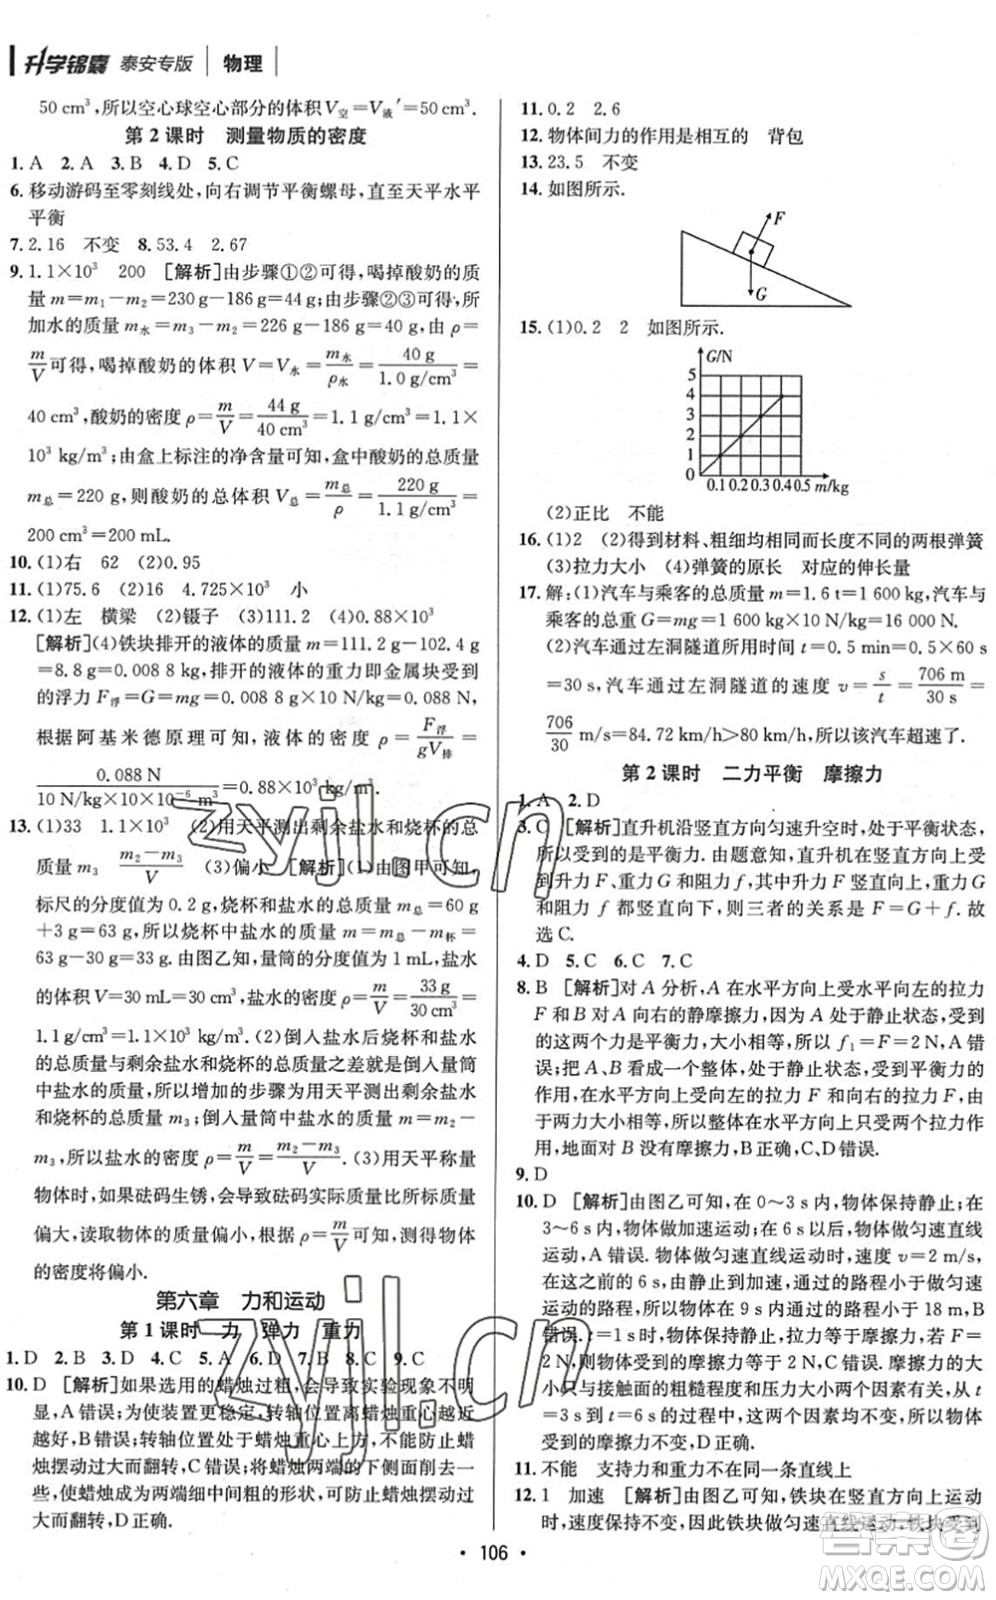 升学锦囊 泰安专版 物理
50 cm³,所以空心球空心部分的体积V空=V液′=50 cm³.
第2课时 测量物质的密度
1. A 2. A 3. B 4. D 5. C
6. 移动游码至零刻线处,向右调节平衡螺母,直至天平水平
平衡
7. 2.16 不变 8. 53.4 2.67
9. 1.1×10³ 200 [解析]由步骤①②可得,喝掉酸奶的质
量m=m₁-m₂=230 g-186 g=44 g;由步骤②③可得,所
加水的质量m水=m₃-m₂=226 g-186 g=40 g,由ρ=
m/V可得,喝掉酸奶的体积V=V水=m水/ρ水=40 g/1.0 g/cm³=
40 cm³,酸奶的密度ρ=m/V=44 g/40 cm³=1.1 g/cm³=1.1×
10³ kg/m³;由盒上标注的净含量可知,盒中酸奶的质量
m总=220 g,则酸奶的总体积V总=m总/ρ=220 g/1.1 g/cm³=
200 cm³=200 mL.
10. (1)右 62 (2)0.95
11. (1)75.6 (2)16 4.725×10³ 小
12. (1)左 横梁 (2)镊子 (3)111.2 (4)0.88×10³
[解析](4)铁块排开的液体的质量m=111.2 g-102.4 g
=8.8 g=0.008 8 kg,排开的液体的重力即金属块受到
的浮力F浮=G=mg=0.008 8 kg×10 N/kg=0.088 N,
根据阿基米德原理可知,液体的密度ρ=F浮/gV排=
0.088 N/10 N/kg×10×10⁻⁶ m³=0.88×10³ kg/m³.
13. (1)33 1.1×10³ (2)用天平测出剩余盐水和烧杯的总
质量m₃ m₂-m₃/V (3)偏小 [解析](1)由图甲可知,
标尺的分度值为0.2 g,烧杯和盐水的总质量m总=60 g
+3 g=63 g,烧杯中盐水的质量m=m总-m杯=
63 g-30 g=33 g.由图乙知,量筒的分度值为1 mL,盐水
的体积V=30 mL=30 cm³,盐水的密度ρ=m/V=33 g/30 cm³=
1.1 g/cm³=1.1×10³ kg/m³.(2)倒入盐水后烧杯和盐水
的总质量与剩余盐水和烧杯的总质量之差就是倒入量筒
中盐水的质量,所以增加的步骤为用天平测出剩余盐水
和烧杯的总质量m₃;倒入量筒中盐水的质量m=m₂-
m₃,所以盐水的密度ρ=m/V=m₂-m₃/V.(3)用天平称量
物体时,如果砝码生锈,会导致砝码实际质量比所标质量
偏大,读取物体的质量会偏小,由ρ=m/V可知,测得的物体
的密度将偏小.
第六章 力和运动
第1课时 力 弹力 重力
1. D 2. B 3. D 4. C 5. A 6. D 7. B 8. C 9. C
10. D [解析]如果选用的蜡烛过粗,会导致实验现象不明
显,A错误;为使装置更稳定,转轴位置离蜡烛重心越近
越好,B错误;转轴位置处于蜡烛重心上方,不能防止蜡
烛摆动过大而翻转,C错误;将蜡烛两端的下部分削去一
些,使蜡烛成为两端细中间粗的形状,可防止蜡烛摆动过
大而翻转,D正确.
11. 0.2 2.6
12. 物体间力的作用是相互的 背包
13. 23.5 不变
14. 如图所示.
F
G
15. (1)0.2 2 如图所示.
G/N
5
4
3
2
1
0
0.1 0.2 0.3 0.4 0.5 m/kg
(2)正比 不能
16. (1)2 (2)得到材料、粗细均相同而长度不同的两根弹簧
(3)拉力大小 (4)弹簧的原长 对应的伸长量
17. 解:(1)汽车与乘客的总质量m=1.6 t=1 600 kg,汽车与
乘客的总重G=mg=1 600 kg×10 N/kg=16 000 N.
(2)汽车通过左洞隧道所用时间t=0.5 min=0.5×60 s
=30 s,汽车通过左洞隧道的速度v=s/t=706 m/30 s=
706/30 m/s=84.72 km/h>80 km/h,所以该汽车超速了.
第2课时 二力平衡 摩擦力
1. A 2. D
3. C [解析]直升机沿竖直方向匀速升空时,处于平衡状态,
所以受到的是平衡力.由题意知,直升机在竖直方向上受
到升力F、重力G和阻力f的作用,其中升力竖直向上,重力
G和阻力f都竖直向下,则三者的关系是F=G+f.故
选C.
4. D 5. C 6. C 7. C
8. B [解析]对A分析,A在水平方向上受水平向左的拉力
F和B对A向右的静摩擦力,因为A处于静止状态,受到
的这两个力是平衡力,大小相等,所以f₁=F,故A错
误;把A、B看成一个整体,处于静止状态,受到平衡力的
作用,在水平方向上受到水平向左的拉力F和向右的拉力F,
由于两力大小相等,所以整体在水平方向上只受两个拉力作
用,地面对B没有摩擦力,B正确,C、D错误.
9. D
10. D [解析]由图乙可知,在0~3 s内,物体保持静止;在
3~6 s内,物体做加速运动;在6 s以后,物体做匀速直线
运动,A错误.物体做匀速直线运动时,速度v=2 m/s,
在这之前的6 s内,先静止,再加速,通过的路程小于做匀速
运动通过的路程,所以物体在0~6 s内通过的路程小于12 m,B
错误.
11. 不能 支持力和重力不在同一条直线上
12. 1 加速 [解析]由图乙可知,铁块在竖直方向上运动
时,速度保持不变,因此铁块做匀速直线运动,铁块受到
• 106 •
zyjl.cn
zyjl.cn